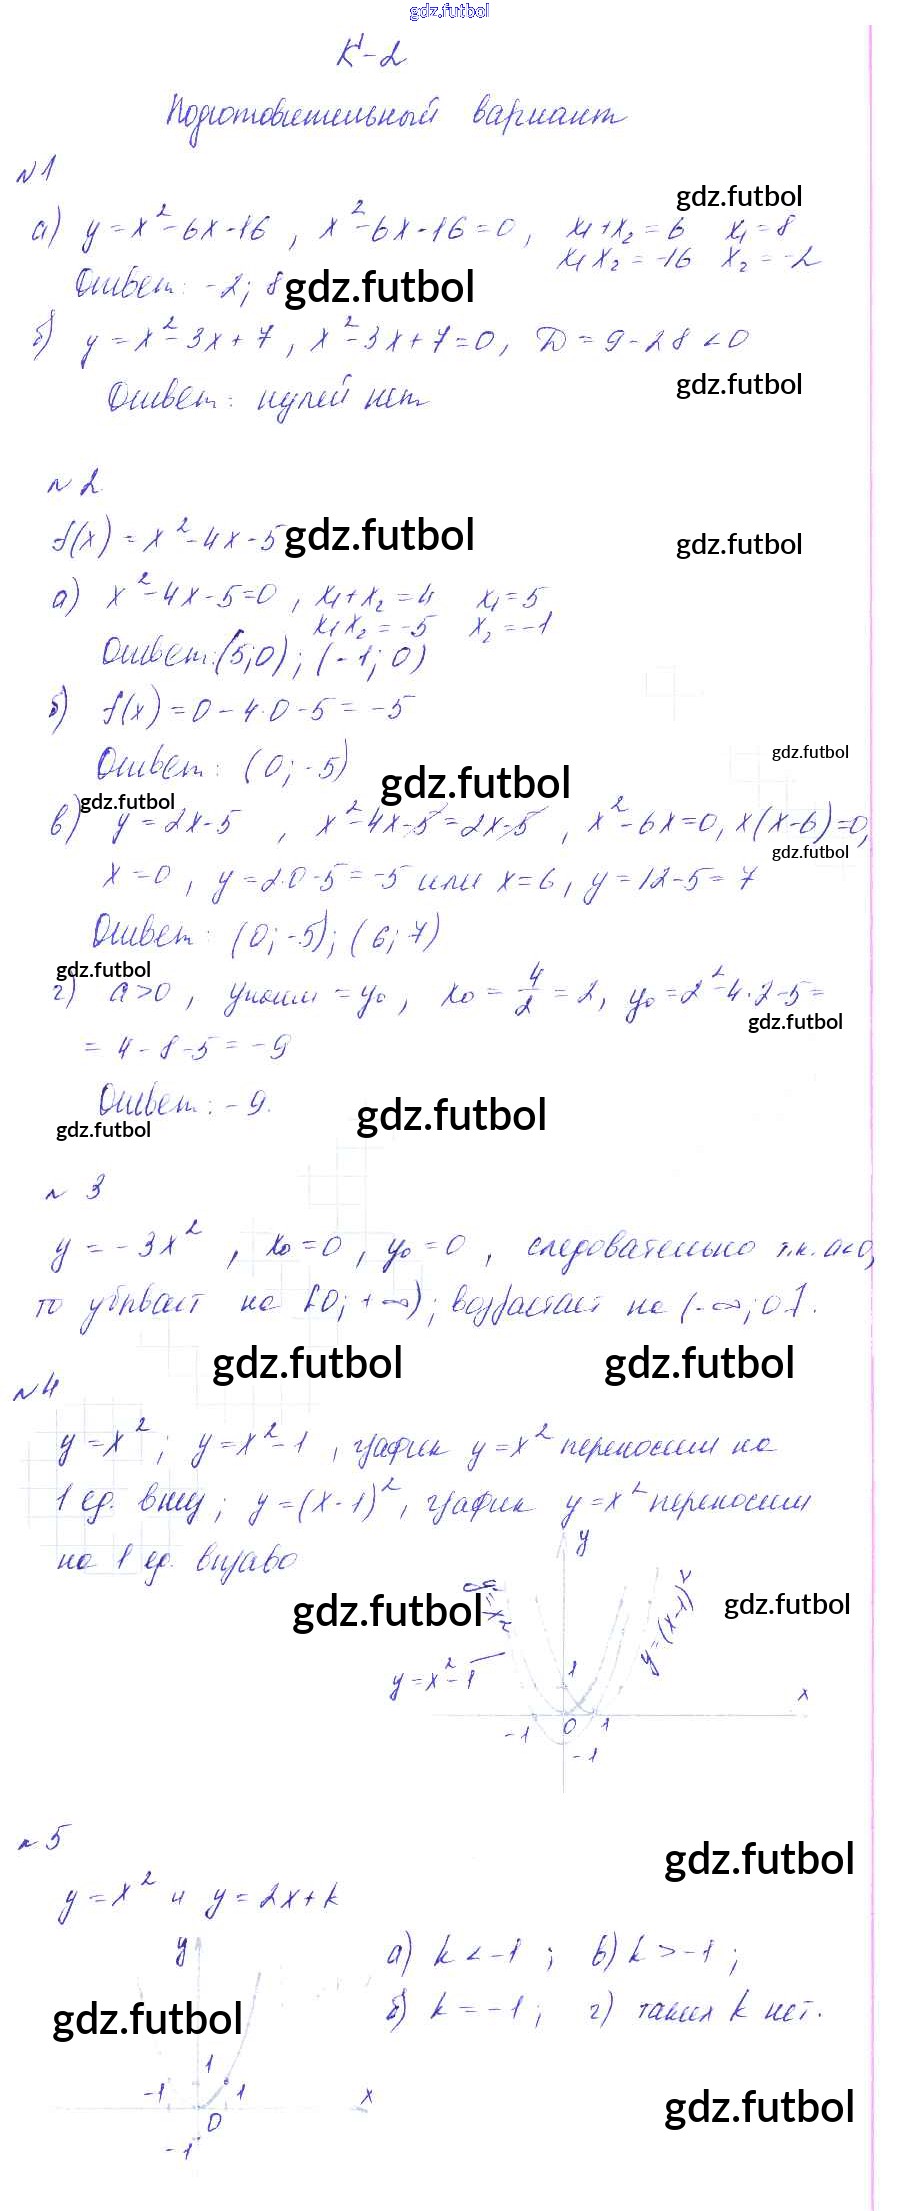 gdz.futbol
К-2
Подготовительный вариант
№1
gdz.futbol
а) y = x² - 6x - 16 , x² - 6x - 16 = 0 , x₁ + x₂ = 6 x₁ = 8
x₁ x₂ = -16 x₂ = -2
Ответ: -2; 8
gdz.futbol
б) y = x² - 3x + 7 , x² - 3x + 7 = 0, D = 9 - 28 < 0
gdz.futbol
Ответ: нулей нет
№ 2
f(x) = x² - 4x - 5
gdz.futbol
gdz.futbol
а) x² - 4x - 5 = 0 , x₁ + x₂ = 4 x₁ = 5
x₁ x₂ = -5 x₂ = -1
Ответ: (5; 0) ; (-1; 0)
б) f(x) = 0 - 4·0 - 5 = -5
gdz.futbol
Ответ: (0; -5)
gdz.futbol
gdz.futbol
в) y = 2x - 5 , x² - 4x - 5 = 2x - 5 , x² - 6x = 0, x(x-6) = 0,
gdz.futbol
x = 0 , y = 2·0 - 5 = -5 или x = 6 , y = 12 - 5 = 7
Ответ: (0; -5); (6; 7)
gdz.futbol
г) a > 0 , yнаим = y₀ , x₀ = 4/2 = 2, y₀ = 2² - 4·2 - 5 =
gdz.futbol
= 4 - 8 - 5 = -9
Ответ: -9.
gdz.futbol
gdz.futbol
№ 3
y = -3x² , x₀ = 0 , y₀ = 0 , следовательно т.к. a<0,
то убывает на [0; +∞) ; возрастает на (-∞; 0].
gdz.futbol
gdz.futbol
№4
y = x² ; y = x² - 1 , график y = x² переносим на
1 ед. вниз ; y = (x - 1)² , график y = x² переносим
на 1 ед. вправо
y
gdz.futbol
gdz.futbol
y = x²
y = (x-1)²
y = x² - 1
1
x
-1
0
1
-1
№5
gdz.futbol
y = x² и y = 2x + k
y
а) k < -1 ; в) k > -1 ;
б) k = -1 ; г) таких k нет.
gdz.futbol
1
-1
1
x
0
-1
gdz.futbol